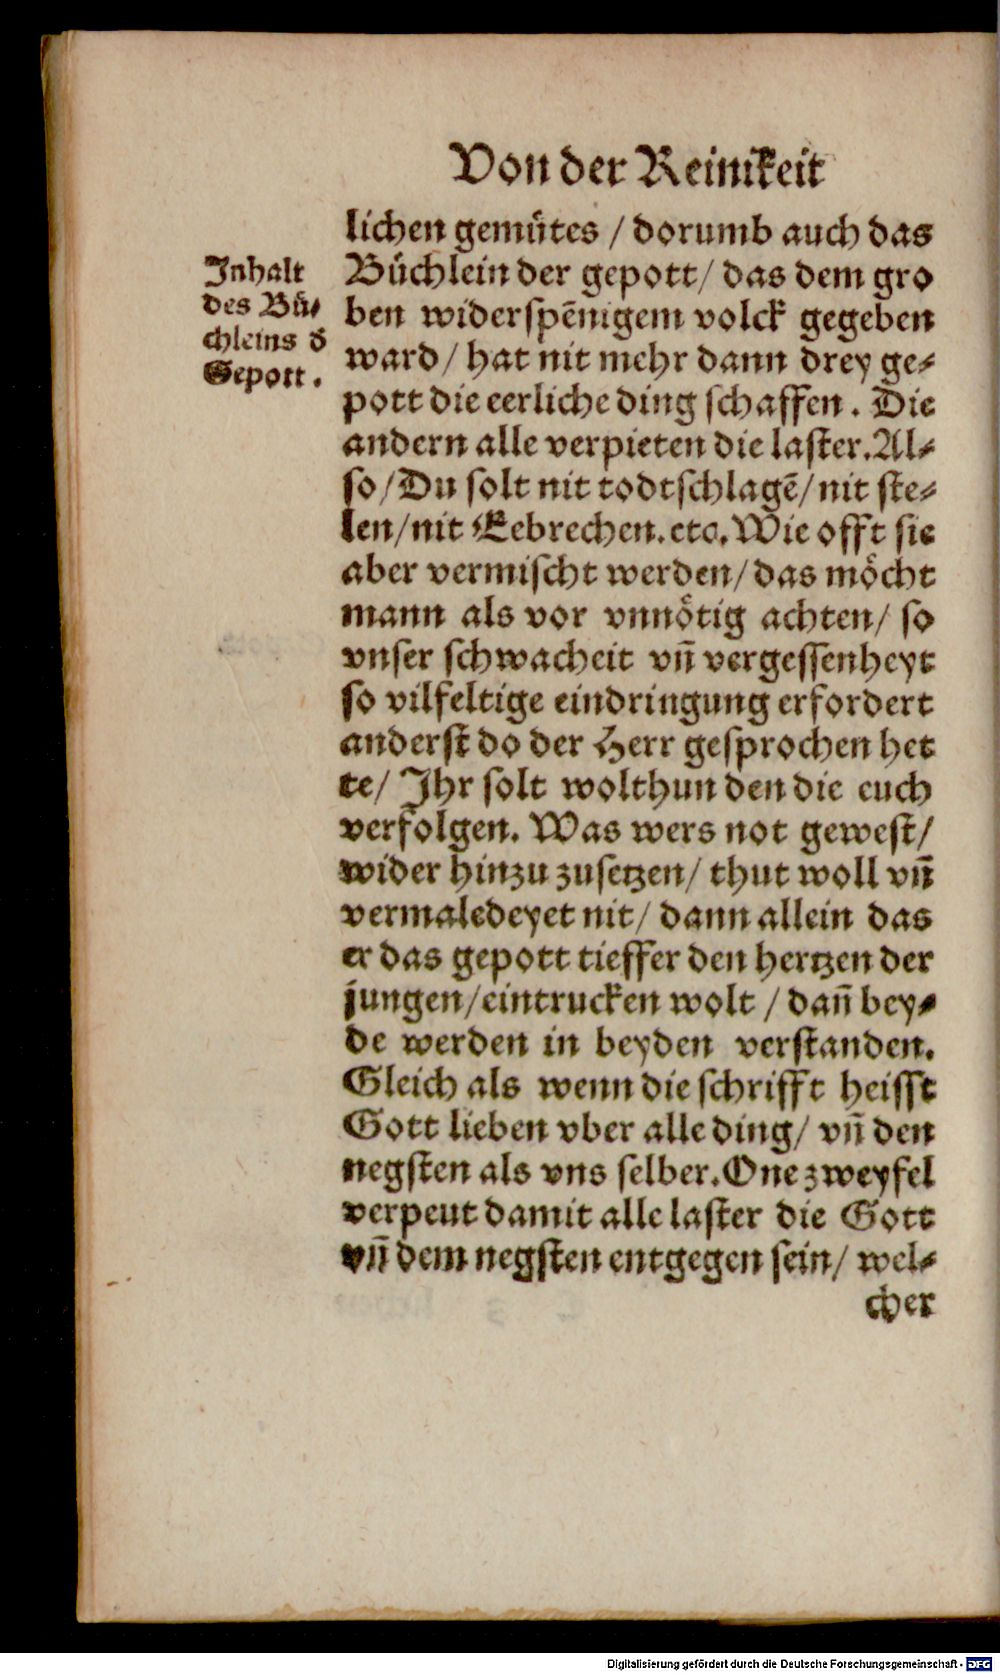 Von der Reinikeit
lichen gemuͤtes / dorumb auch das
Inhalt
des Buͤ⸗
chleins d̕
Gepott.
Buͤchlein der gepott / das dem gro
ben widerspēnigem volck gegeben
ward / hat nit mehr dann drey ge⸗
pott die eerliche ding schaffen. Die
andern alle verpieten die laster. Al⸗
so / Du solt nit todtschlagē / nit ste⸗
len / nit Eebrechen. etc. Wie offt sie
aber vermischt werden / das moͤcht
mann als vor vnnoͤtig achten / so
vnser schwacheit vn̄ vergessenheyt
so vilfeltige eindringung erfordert
anderst do der Herr gesprochen het
te / Ihr solt wolthun den die euch
verfolgen. Was wers not gewest /
wider hinzu zusetzen / thut woll vn̄
vermaledeyet nit / dann allein das
er das gepott tieffer den hertzen der
jungen / eintrucken wolt / dan̄ bey⸗
de werden in beyden verstanden.
Gleich als wenn die schrifft heisst
Gott lieben vber alle ding / vn̄ den
negsten als vns selber. One zweyfel
verpeut damit alle laster die Gott
vn̄ dem negsten entgegen sein / wel⸗
cher
Digitalisierung gefördert durch die Deutsche Forschungsgemeinschaft - DFG